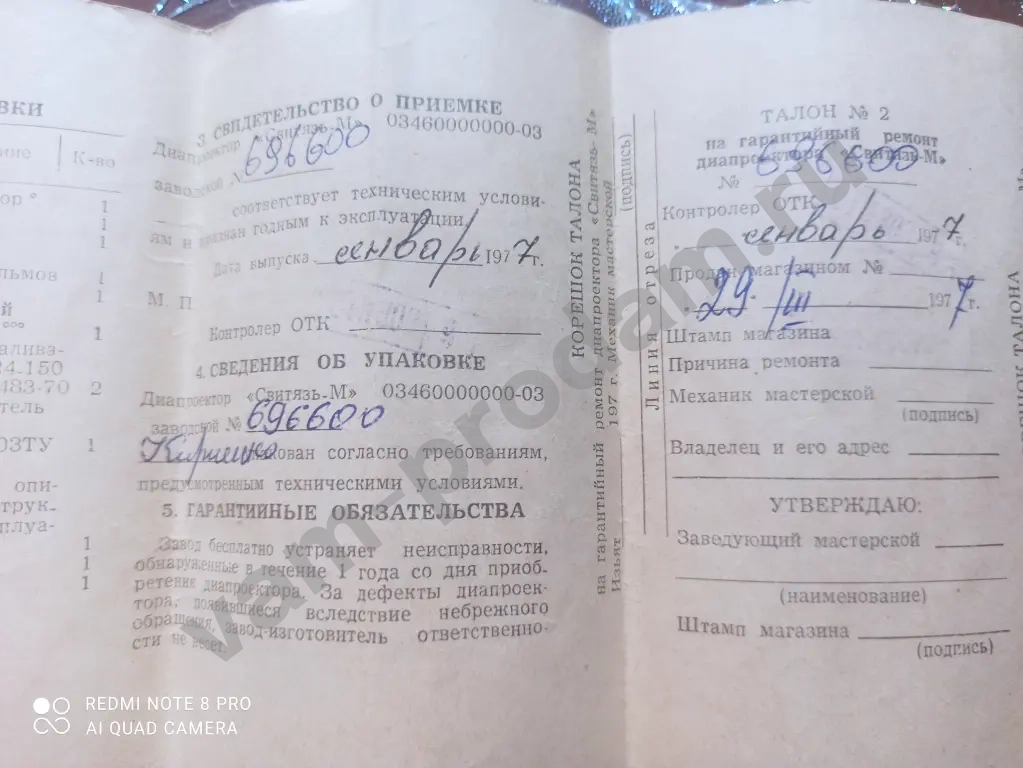 ВКИ
К-во
1
1
1
1
1
24-150
483-70 2
ОЗТУ 1
1
1
1
3. СВИДЕТЕЛЬСТВО О ПРИЕМКЕ
Диапроектор «Свитязь-М» 03460000000-03
заводской № 696600
соответствует техническим услови-
ям и признан годным к эксплуатации.
Дата выпуска сенварь 1977 г.
М. П
Контролер ОТК
4. СВЕДЕНИЯ ОБ УПАКОВКЕ
Диапроектор «Свитязь-М» 03460000000-03
заводской № 696600
ован согласно требованиям,
предусмотренным техническими условиями.
5. ГАРАНТИЙНЫЕ ОБЯЗАТЕЛЬСТВА
Завод бесплатно устраняет неисправности,
обнаруженные в течение 1 года со дня приоб-
ретения диапроектора. За дефекты диапроек-
тора, появившиеся вследствие небрежного
обращения, завод-изготовитель ответственно-
сти не несет.
КОРЕШОК ТАЛОНА
на гарантийный ремонт диапроектора «Свитязь-М»
Изъят 197 г. Механик мастерской
(подпись)
Линия отреза
ТАЛОН № 2
на гарантийный ремонт
диапроектора «Свитязь-М»
№ 696600
Контролер ОТК
сенварь 1977 г.
Продан магазином №
29. III 1977 г.
Штамп магазина
Причина ремонта
Механик мастерской
(подпись)
Владелец и его адрес
УТВЕРЖДАЮ:
Заведующий мастерской
(наименование)
Штамп магазина
(подпись)
vam-prodam.ru
REDMI NOTE 8 PRO
AI QUAD CAMERA